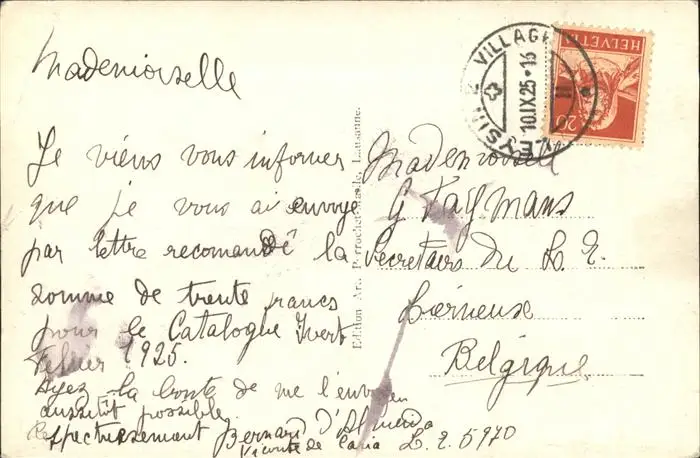 Mademoiselle
Je viens vous informer
que je vous ai envoyé
par lettre recomandé la
somme de trente francs
pour le Catalogue Yvert
1925.
Ayez la bonté de me l'envoyer
aussitôt possible.
Respectueusement Bernard d'Almeida
Vicomte de L. E. 5970
Edition Art. Perrochet-Matile, Lausanne.
LEYSIN VILLAGE
10.IX.25-16
II
HELVETIA
20
Mademoiselle
G Taymans
Secretaire du L. E.
Lierneux
Belgique